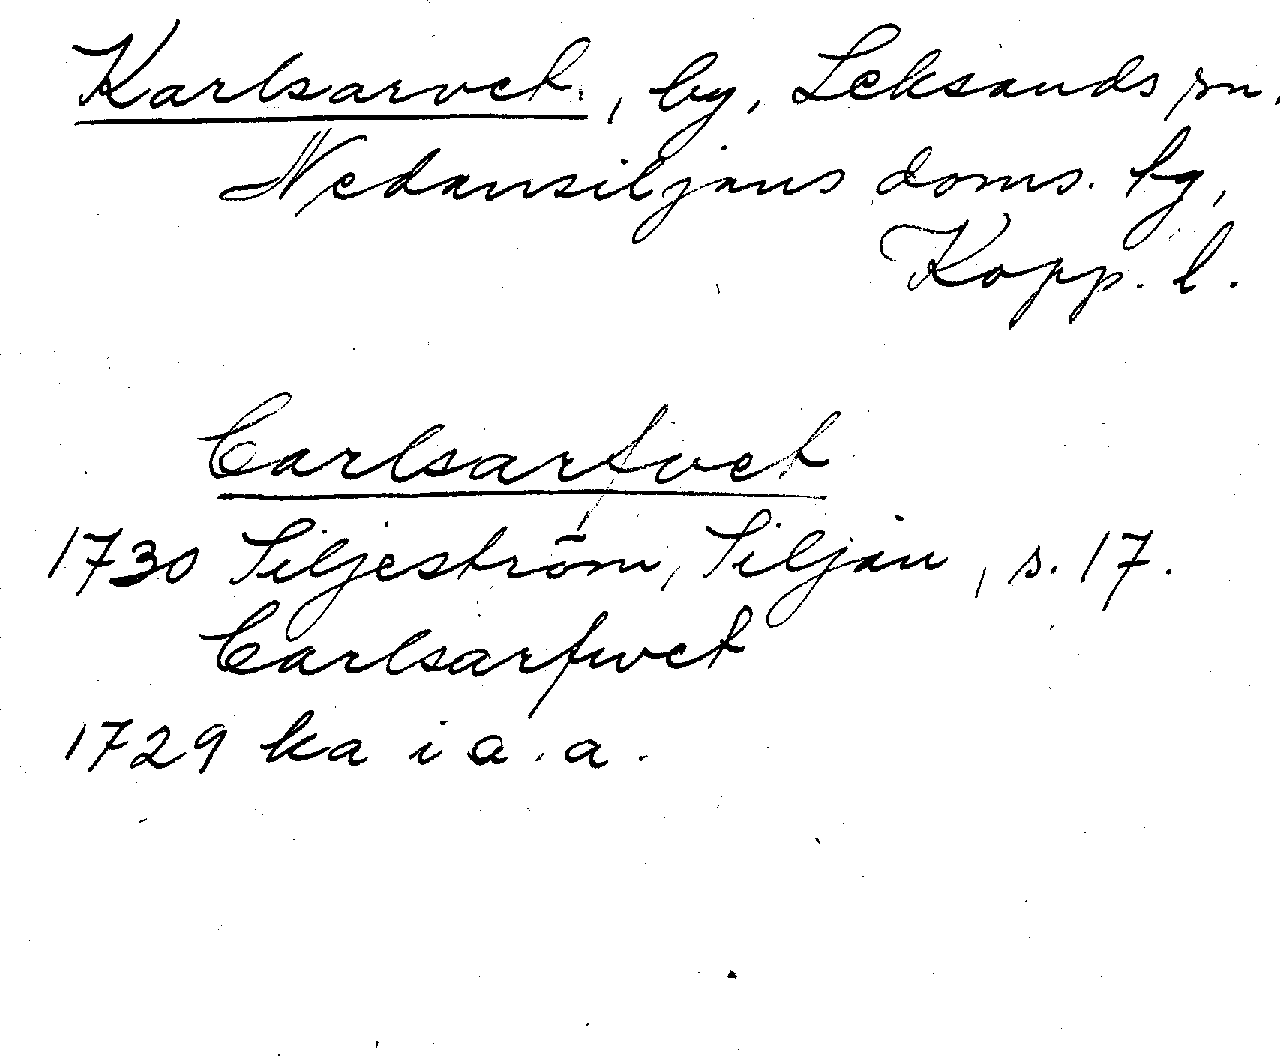 Karlsarvet, by, Leksands sn.
Nedansiljans doms. tg,
Kopp. l.
Carlsarfvet
1730 Siljeström, Siljan, s. 17.
Carlsarfwet
1729 ka i a. a.